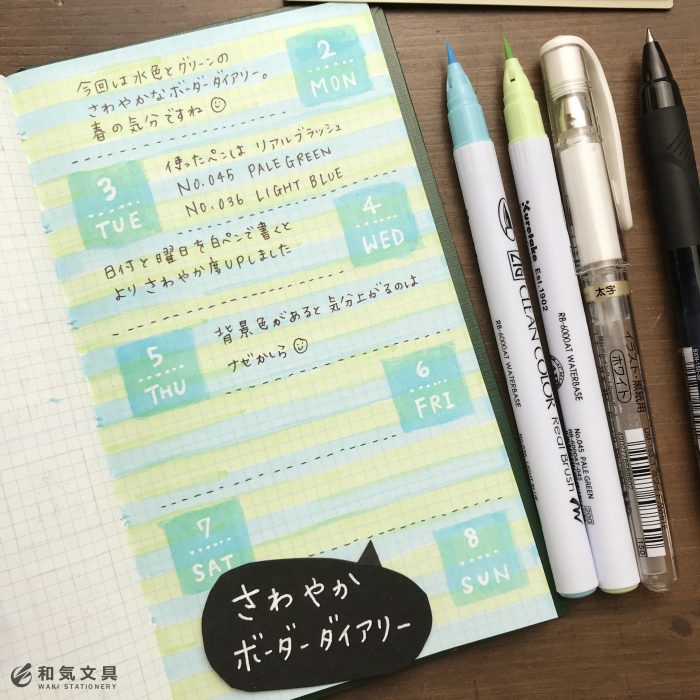 今回は水色とグリーンの
さわやかなボーダーダイアリー。
春の気分ですね
2
MON
3
TUE
使ったペンは リアルブラッシュ
NO.045 PALE GREEN
NO.036 LIGHT BLUE
4
WED
日付と曜日を白ペンで書くと
より さわやか度UPしました
5
THU
背景色があると 気分上がるのは
ナゼかしら
6
FRI
7
SAT
8
SUN
さわやか
ボーダーダイアリー
ZIG CLEAN COLOR Real Brush
RB-6000AT WATERBASE
Kuretake Est.1902
ZIG CLEAN COLOR Real Brush
RB-6000AT WATERBASE
No.045 PALE GREEN
太字
イラスト・黒紙用
ホワイト
和気文具
WAKI STATIONERY